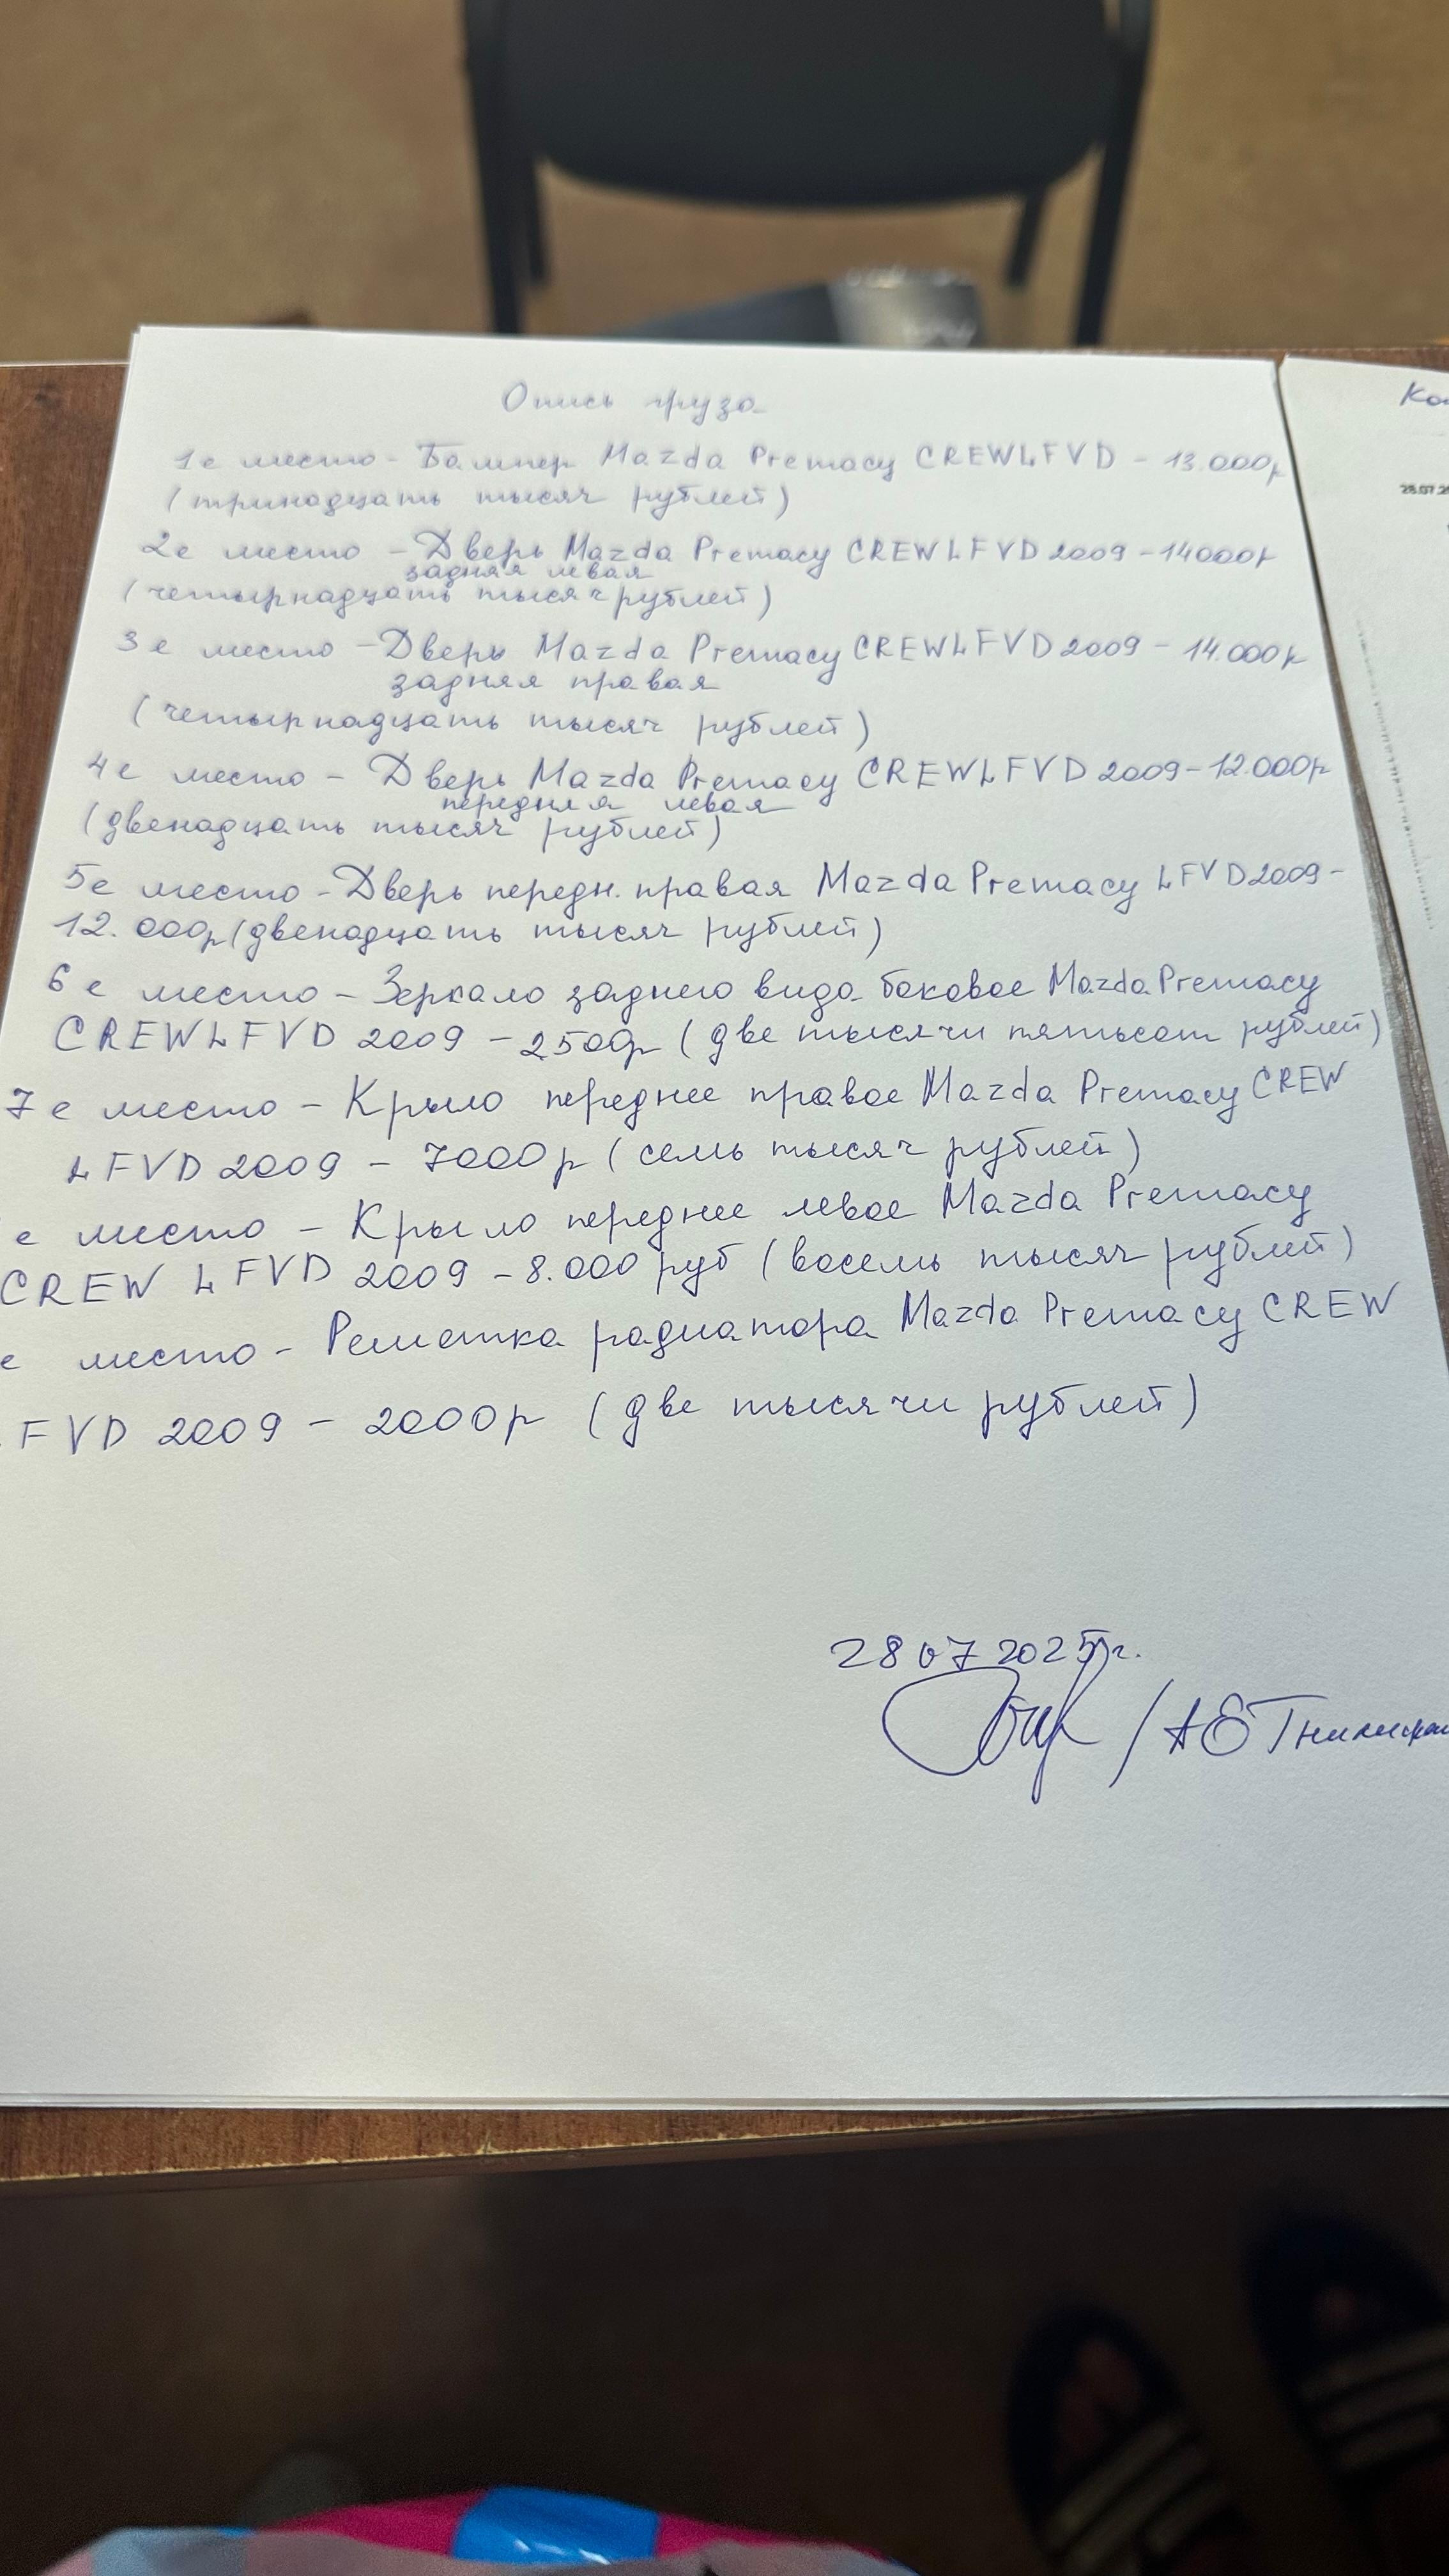 Опись груза
1е место - Бампер Mazda Premacy CREWLFVD - 13.000р
(тринадцать тысяч рублей)
2е место - Дверь Mazda Premacy CREWLFVD 2009 - 14000р
задняя левая
(четырнадцать тысяч рублей)
3е место - Дверь Mazda Premacy CREWLFVD 2009 - 14.000р
задняя правая
(четырнадцать тысяч рублей)
4е место - Дверь Mazda Premacy CREWLFVD 2009 - 12.000р
передняя левая
(двенадцать тысяч рублей)
5е место - Дверь передн. правая Mazda Premacy LFVD 2009 -
12.000р (двенадцать тысяч рублей)
6е место - Зеркало заднего вида боковое Mazda Premacy
CREWLFVD 2009 - 2500р (две тысячи пятьсот рублей)
7е место - Крыло переднее правое Mazda Premacy CREW
LFVD 2009 - 7000р (семь тысяч рублей)
е место - Крыло переднее левое Mazda Premacy
CREW LFVD 2009 - 8.000 руб (восемь тысяч рублей)
е место - Решетка радиатора Mazda Premacy CREW
FVD 2009 - 2000р (две тысячи рублей)
28 07 2025г.
/ АЕ
28.07.2